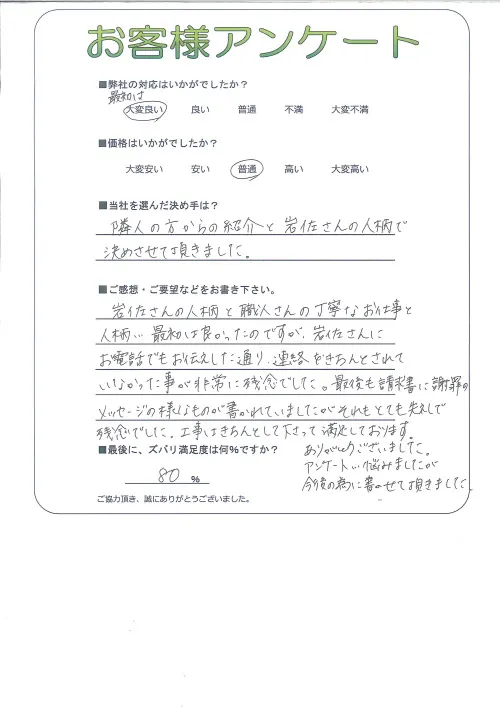 お客様アンケート
■弊社の対応はいかがでしたか？
最初は
大変良い 良い 普通 不満 大変不満
■価格はいかがでしたか？
大変安い 安い 普通 高い 大変高い
■当社を選んだ決め手は？
隣人の方からの紹介と岩佐さんの人柄で
決めさせて頂きました。
■ご感想・ご要望などをお書き下さい。
岩佐さんの人柄と職人さんの丁寧なお仕事と
人柄… 最初は良かったのですが、岩佐さんに
お電話でもお伝えした通り、連絡をきちんとされて
いなかった事が非常に残念でした。最後も請求書に謝罪の
メッセージの様なものが書かれていましたがそれもとても失礼で
残念でした。工事はきちんとして下さって満足しております。
■最後に、ズバリ満足度は何%ですか？
80 %
ありがとうございました。
アンケート… 悩みましたが
今後の為に書かせて頂きました。
ご協力頂き、誠にありがとうございました。